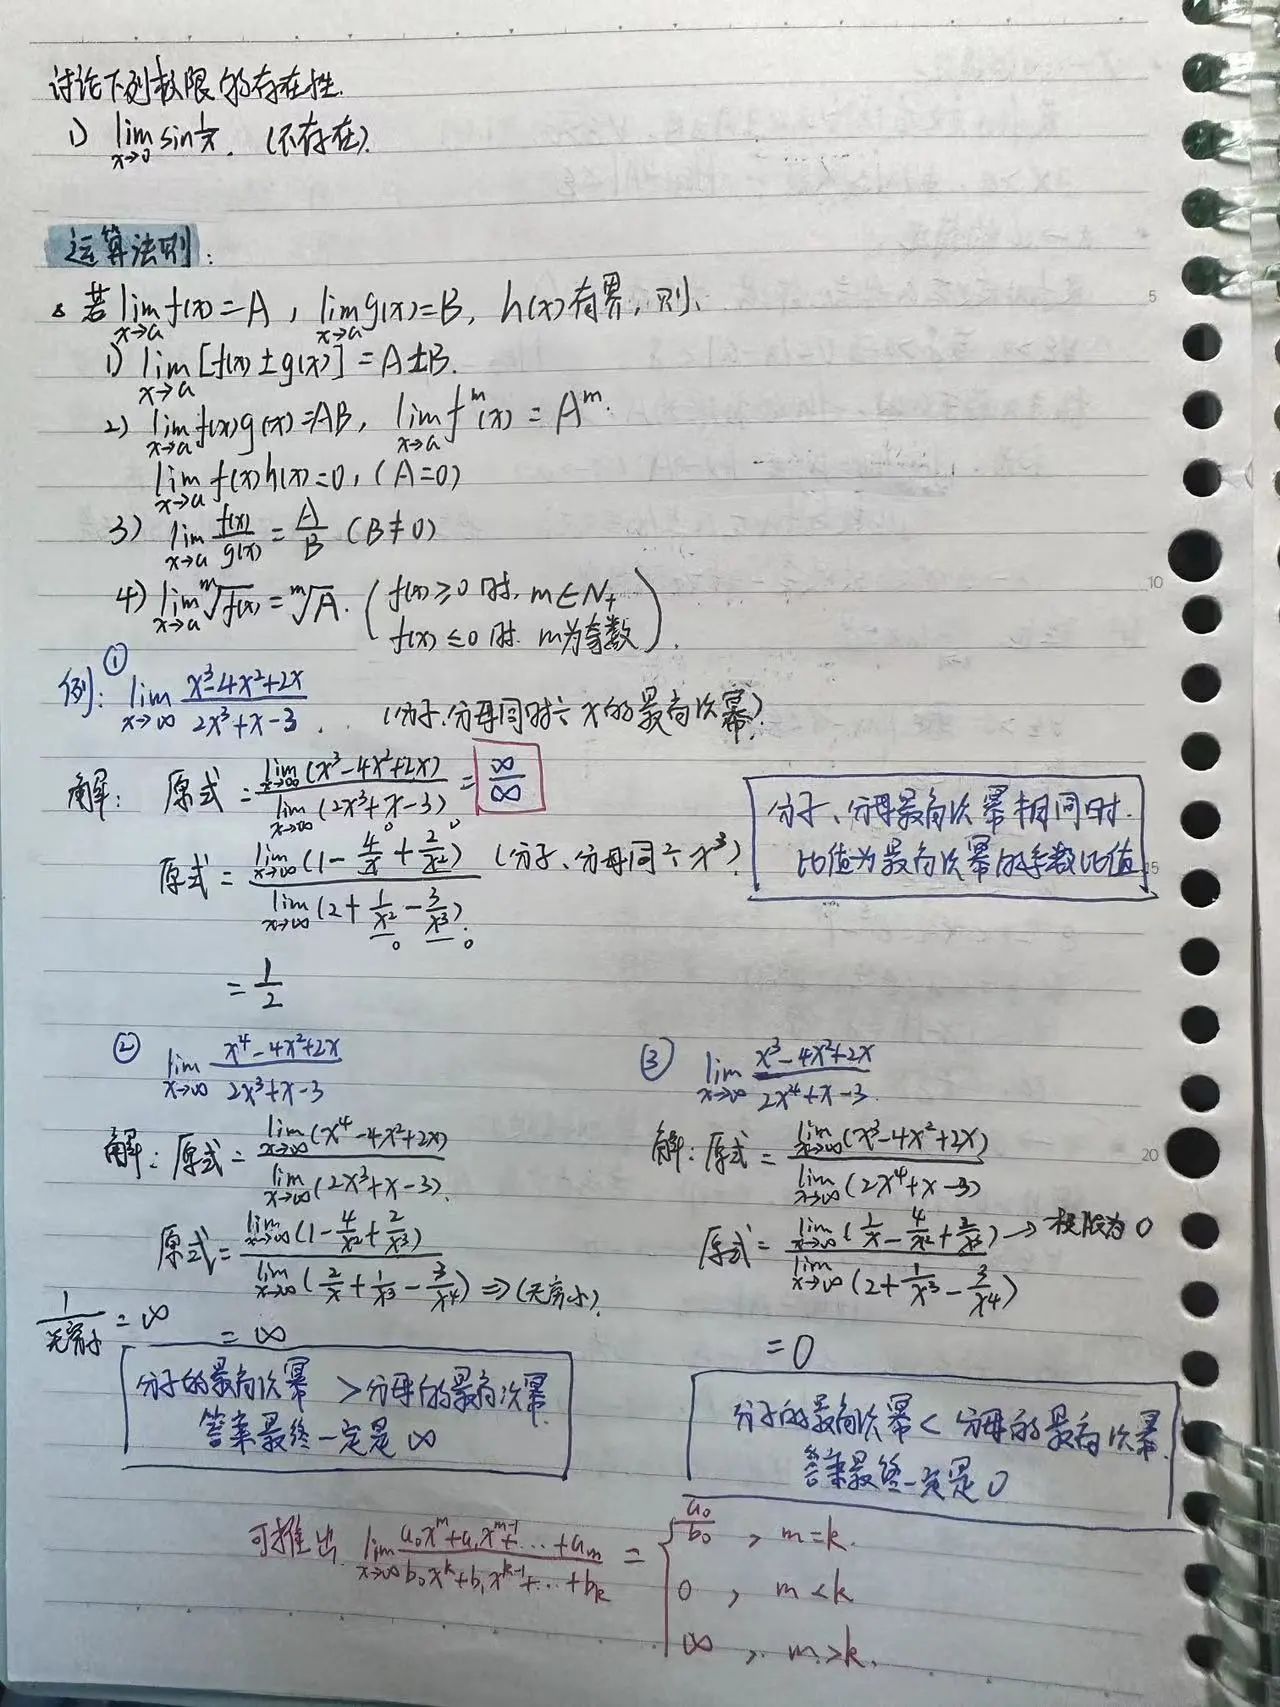 讨论下列极限的存在性.
1) lim x→0 sin 1/x. (不存在).
运算法则:
若 lim x→a f(x)=A, lim x→a g(x)=B, h(x)有界,则、
1) lim x→a [f(x)±g(x)]=A±B.
2) lim x→a f(x)g(x)=AB, lim x→a f^m(x)=A^m.
lim x→a f(x)h(x)=0, (A=0)
3) lim x→a f(x)/g(x) = A/B (B≠0)
4) lim x→a ᵐ√f(x) = ᵐ√A. (f(x)≥0 时, m∈N+
f(x)≤0 时. m为奇数).
例: ① lim x→∞ (x³-4x²+2x)/(2x³+x-3). (分子、分母同时÷x的最高次幂).
解: 原式 = lim x→∞ (x³-4x²+2x) / lim x→∞ (2x³+x-3) = ∞/∞
分子、分母最高次幂相同时.
比值为最高次幂的系数比值
原式 = lim x→∞ (1 - 4/x + 2/x²) / lim x→∞ (2 + 1/x² - 3/x³) (分子、分母同÷x³)
0 0
0 0
= 1/2
② lim x→∞ (x⁴-4x²+2x)/(2x³+x-3)
解: 原式 = lim x→∞ (x⁴-4x²+2x) / lim x→∞ (2x³+x-3).
原式 = lim x→∞ (1 - 4/x² + 2/x³) / lim x→∞ (2/x + 1/x³ - 3/x⁴) ⇒ (无穷小).
1/无穷小 = ∞
= ∞
分子的最高次幂 > 分母的最高次幂
答案最终一定是 ∞
③ lim x→∞ (x³-4x²+2x)/(2x⁴+x-3).
解: 原式 = lim x→∞ (x³-4x²+2x) / lim x→∞ (2x⁴+x-3)
原式 = lim x→∞ (1/x - 4/x² + 2/x³) → 极限为 0 / lim x→∞ (2 + 1/x³ - 3/x⁴)
= 0
分子的最高次幂 < 分母的最高次幂.
答案最终一定是 0
可推出 lim x→∞ (a₀x^m+a₁x^(m-1)+…+a_m)/(b₀x^k+b₁x^(k-1)+…+b_k) = { a₀/b₀, m=k.
0, m<k
∞, m>k.
5
10
15
20